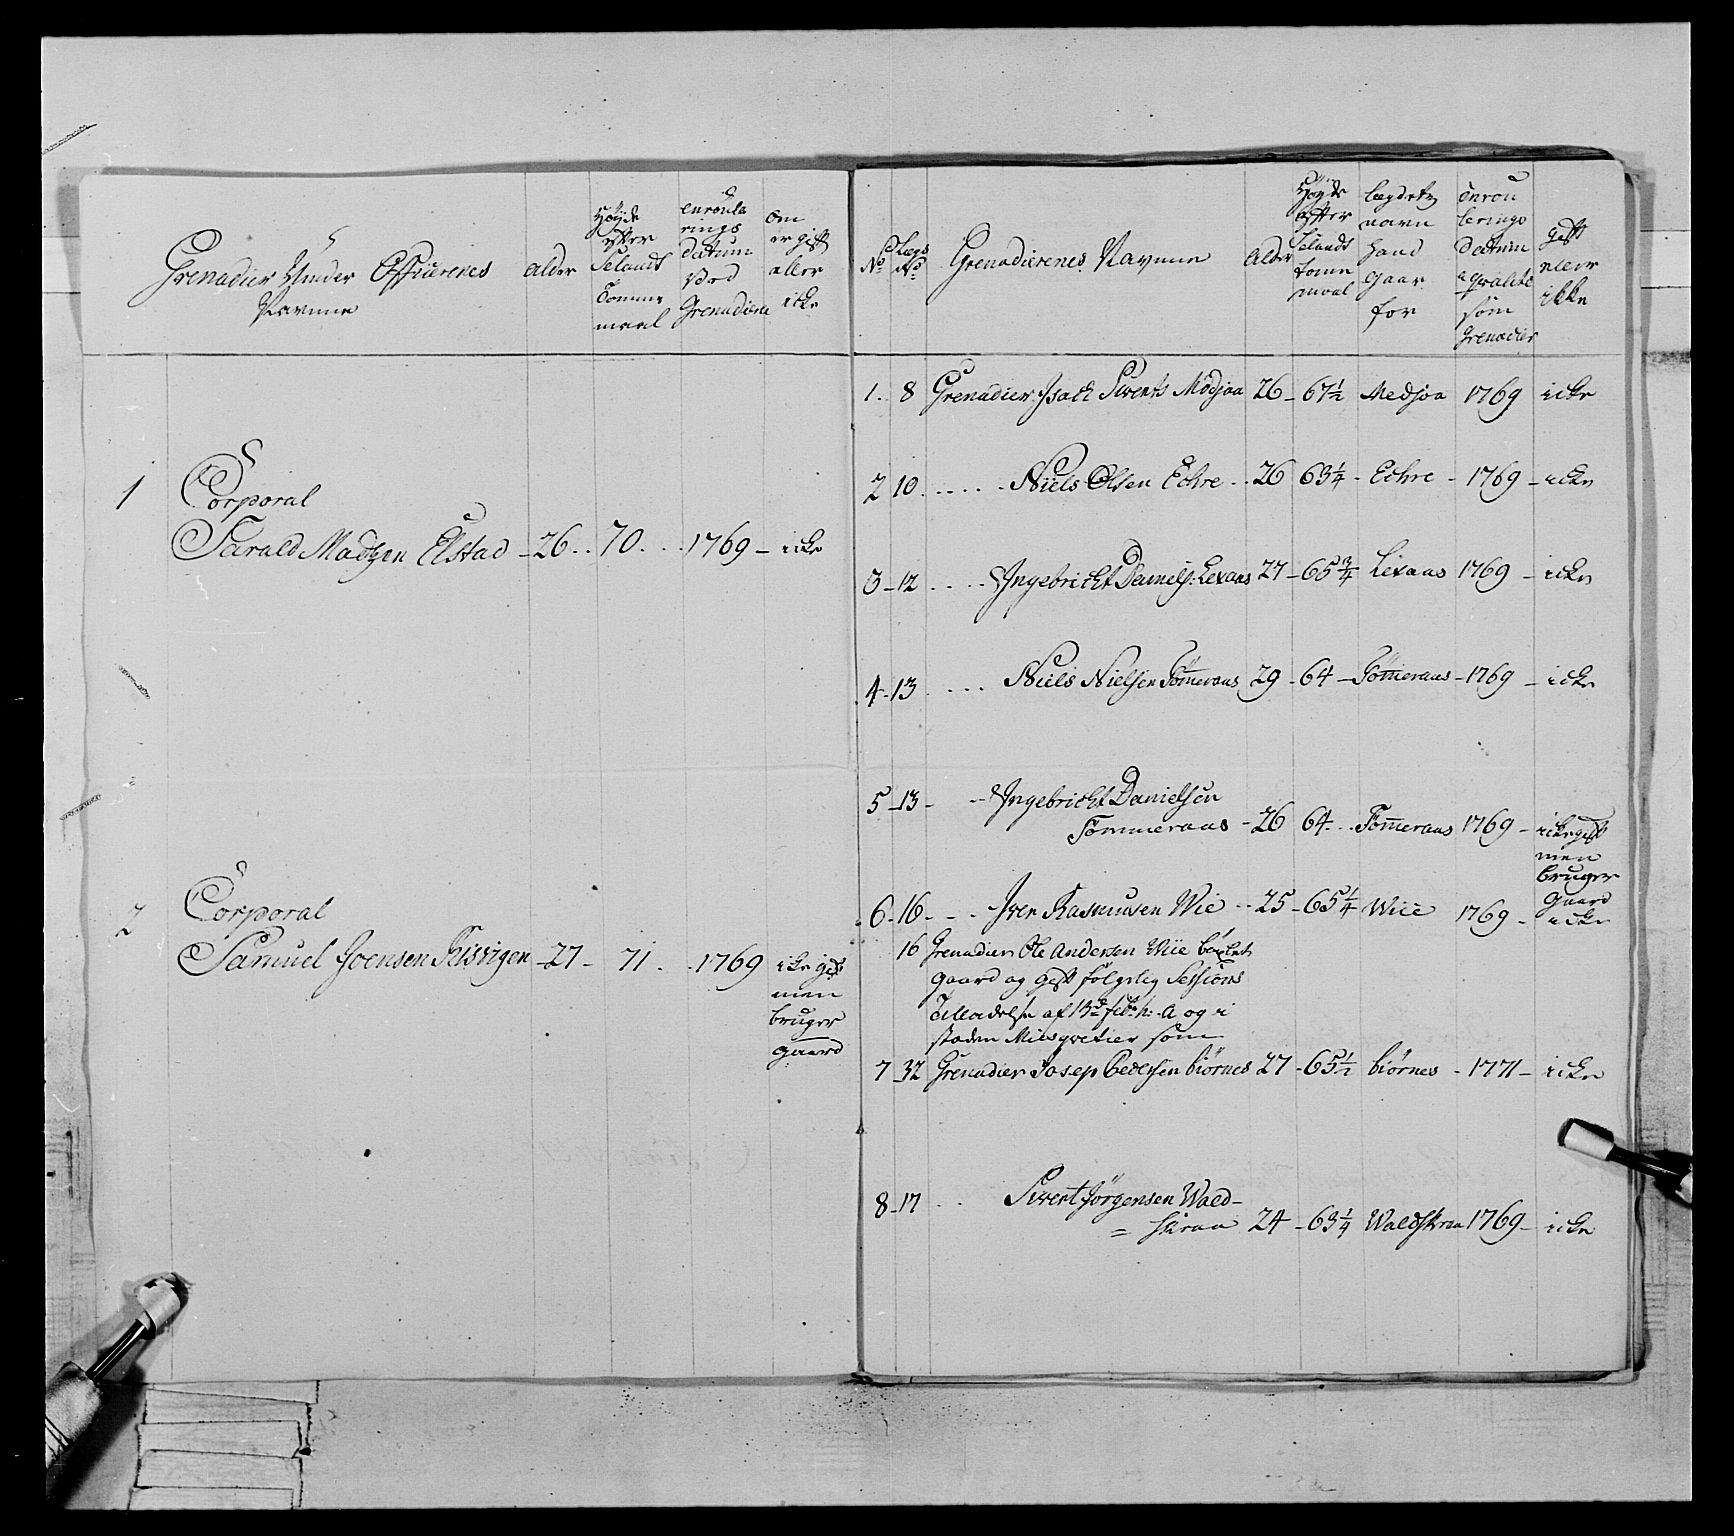 Grenadier Under Officerenes
Navnne
alder
Høyde
efter
Selands
Tomme
maal
enroule
rings
datum
ved
Grenadiere
om
er gift
eller
icke
1
Corporal
Harald Madzen Elstad - 26 . . 70 . . . 1769 - icke
2
Corporal
Samuel Joensen - 27 - 71 . . 1769 icke gift
men
bruger
gaard
No
Lægs
No
Grenadierenes Navnne
Alder
Høyde
efter
Selands
tomme
maal
Lægdetz
navn
hand
gaar
for
Enrou
lerings
Datum
som
Grenadier
gift
eller
ikke
1. 8 Grenadier Isach Siverts Modjaa 26 - 67½ Medjoa 1769 icke
2 10 . . . . . Niels Olsen Echre . . 26 63¼ - Echre - 1769 - icke
3 - 12 . . . . Ingebricht Daniels: Lexaas 27 - 65¾ Lexaas 1769 - icke
4 - 13 . . . . Niels Nielsen Tømeraas 29 - 64 - Tømeraas - 1769 - icke
5 - 13 - - - Ingebricht Danielsen
Tømmeraas - 26 64 . . Tømeraas 1769 - icke gift
men
bruger
Gaard
6 - 16 - - - Iver Rasmusen Wie - - 25 - 65¼ Wiie 1769 - icke
16 Grenadier Ole Andersen Wiie
Gaard og Gift følgelig Sessions
Tilladelse af 13de febr: h: A og i
staden som
7 - 32 Grenadier Josep Pedersen biørnes 27 - 65½ biørnes - 1771 - icke
8 - 17 . . Sivert Jørgensen Wald-
= skraa 24 - 63¼ Waldskraa 1769 - icke